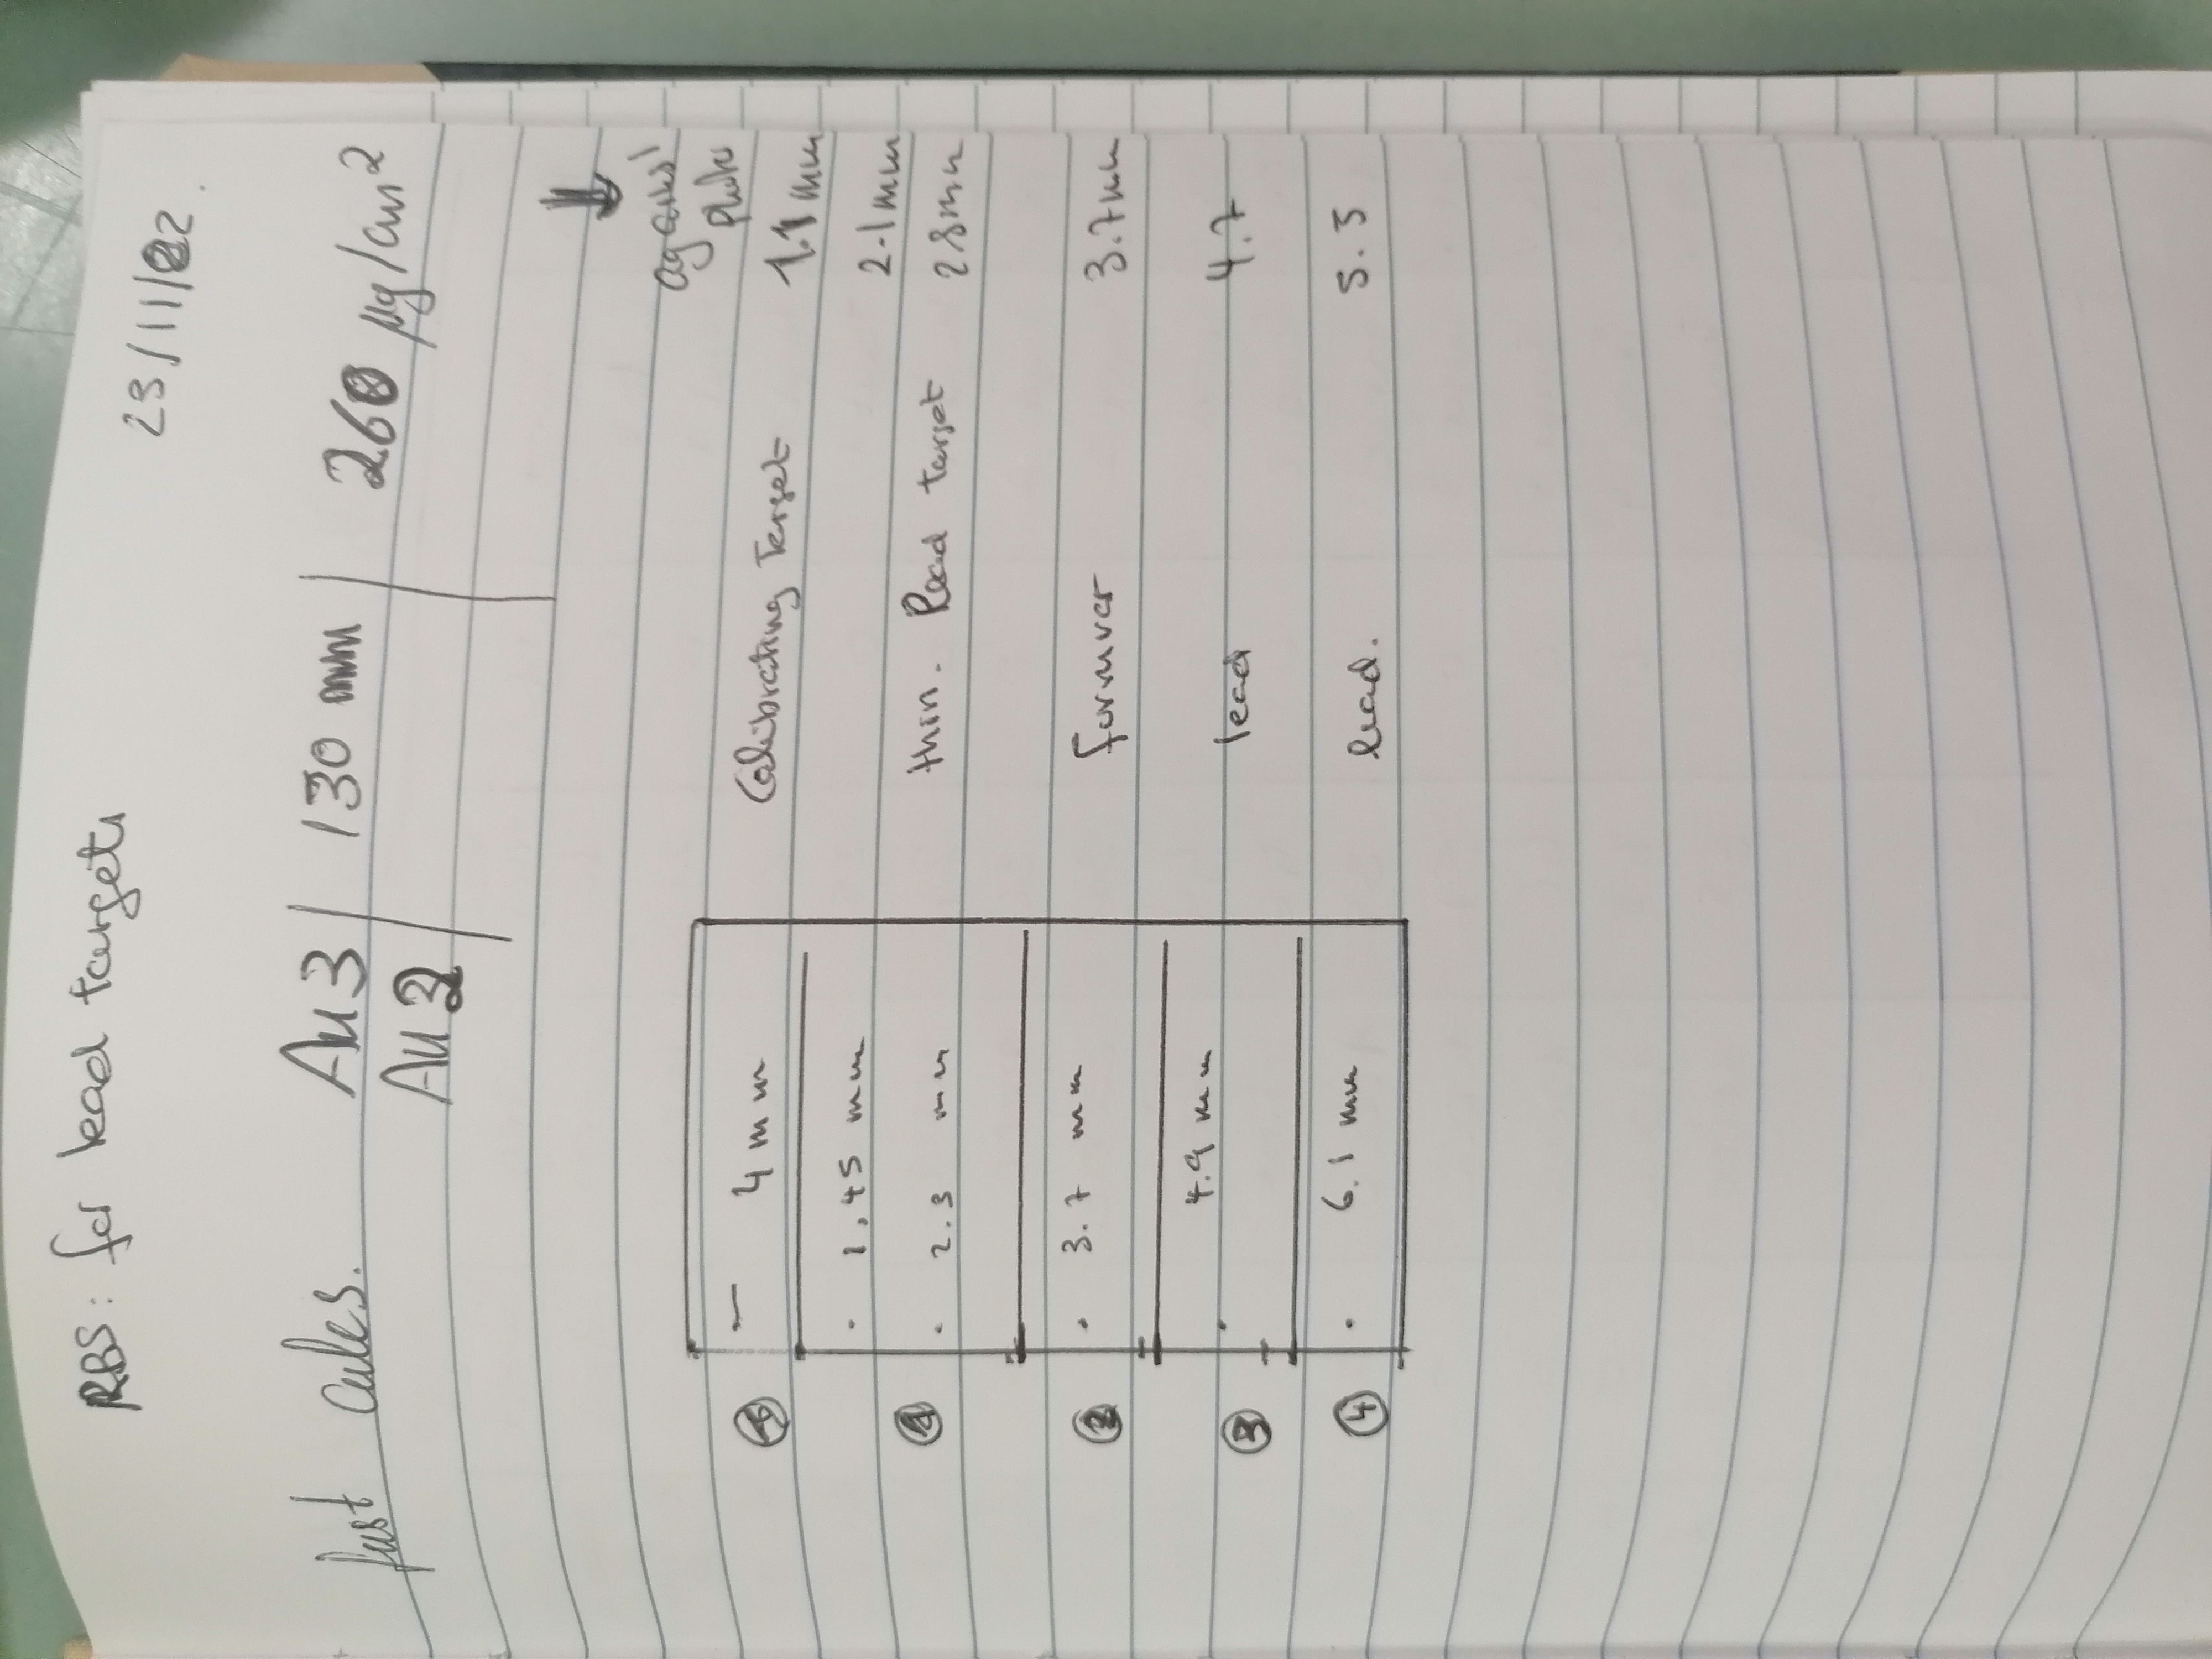 RBS: for lead targets
23/11/22.
Just cales. Au3 | 130 mm | 260 µg/cm2
Au2
against
photo
4 mm Calibrating Target 1.1 mm
1.45 mm 2.1 mm
1 2.3 mm thin. Read target 2.8 mm
2 3.7 mm formver 3.7 mm
3 4.9 mm lead 4.7
4 6.1 mm lead. 5.3